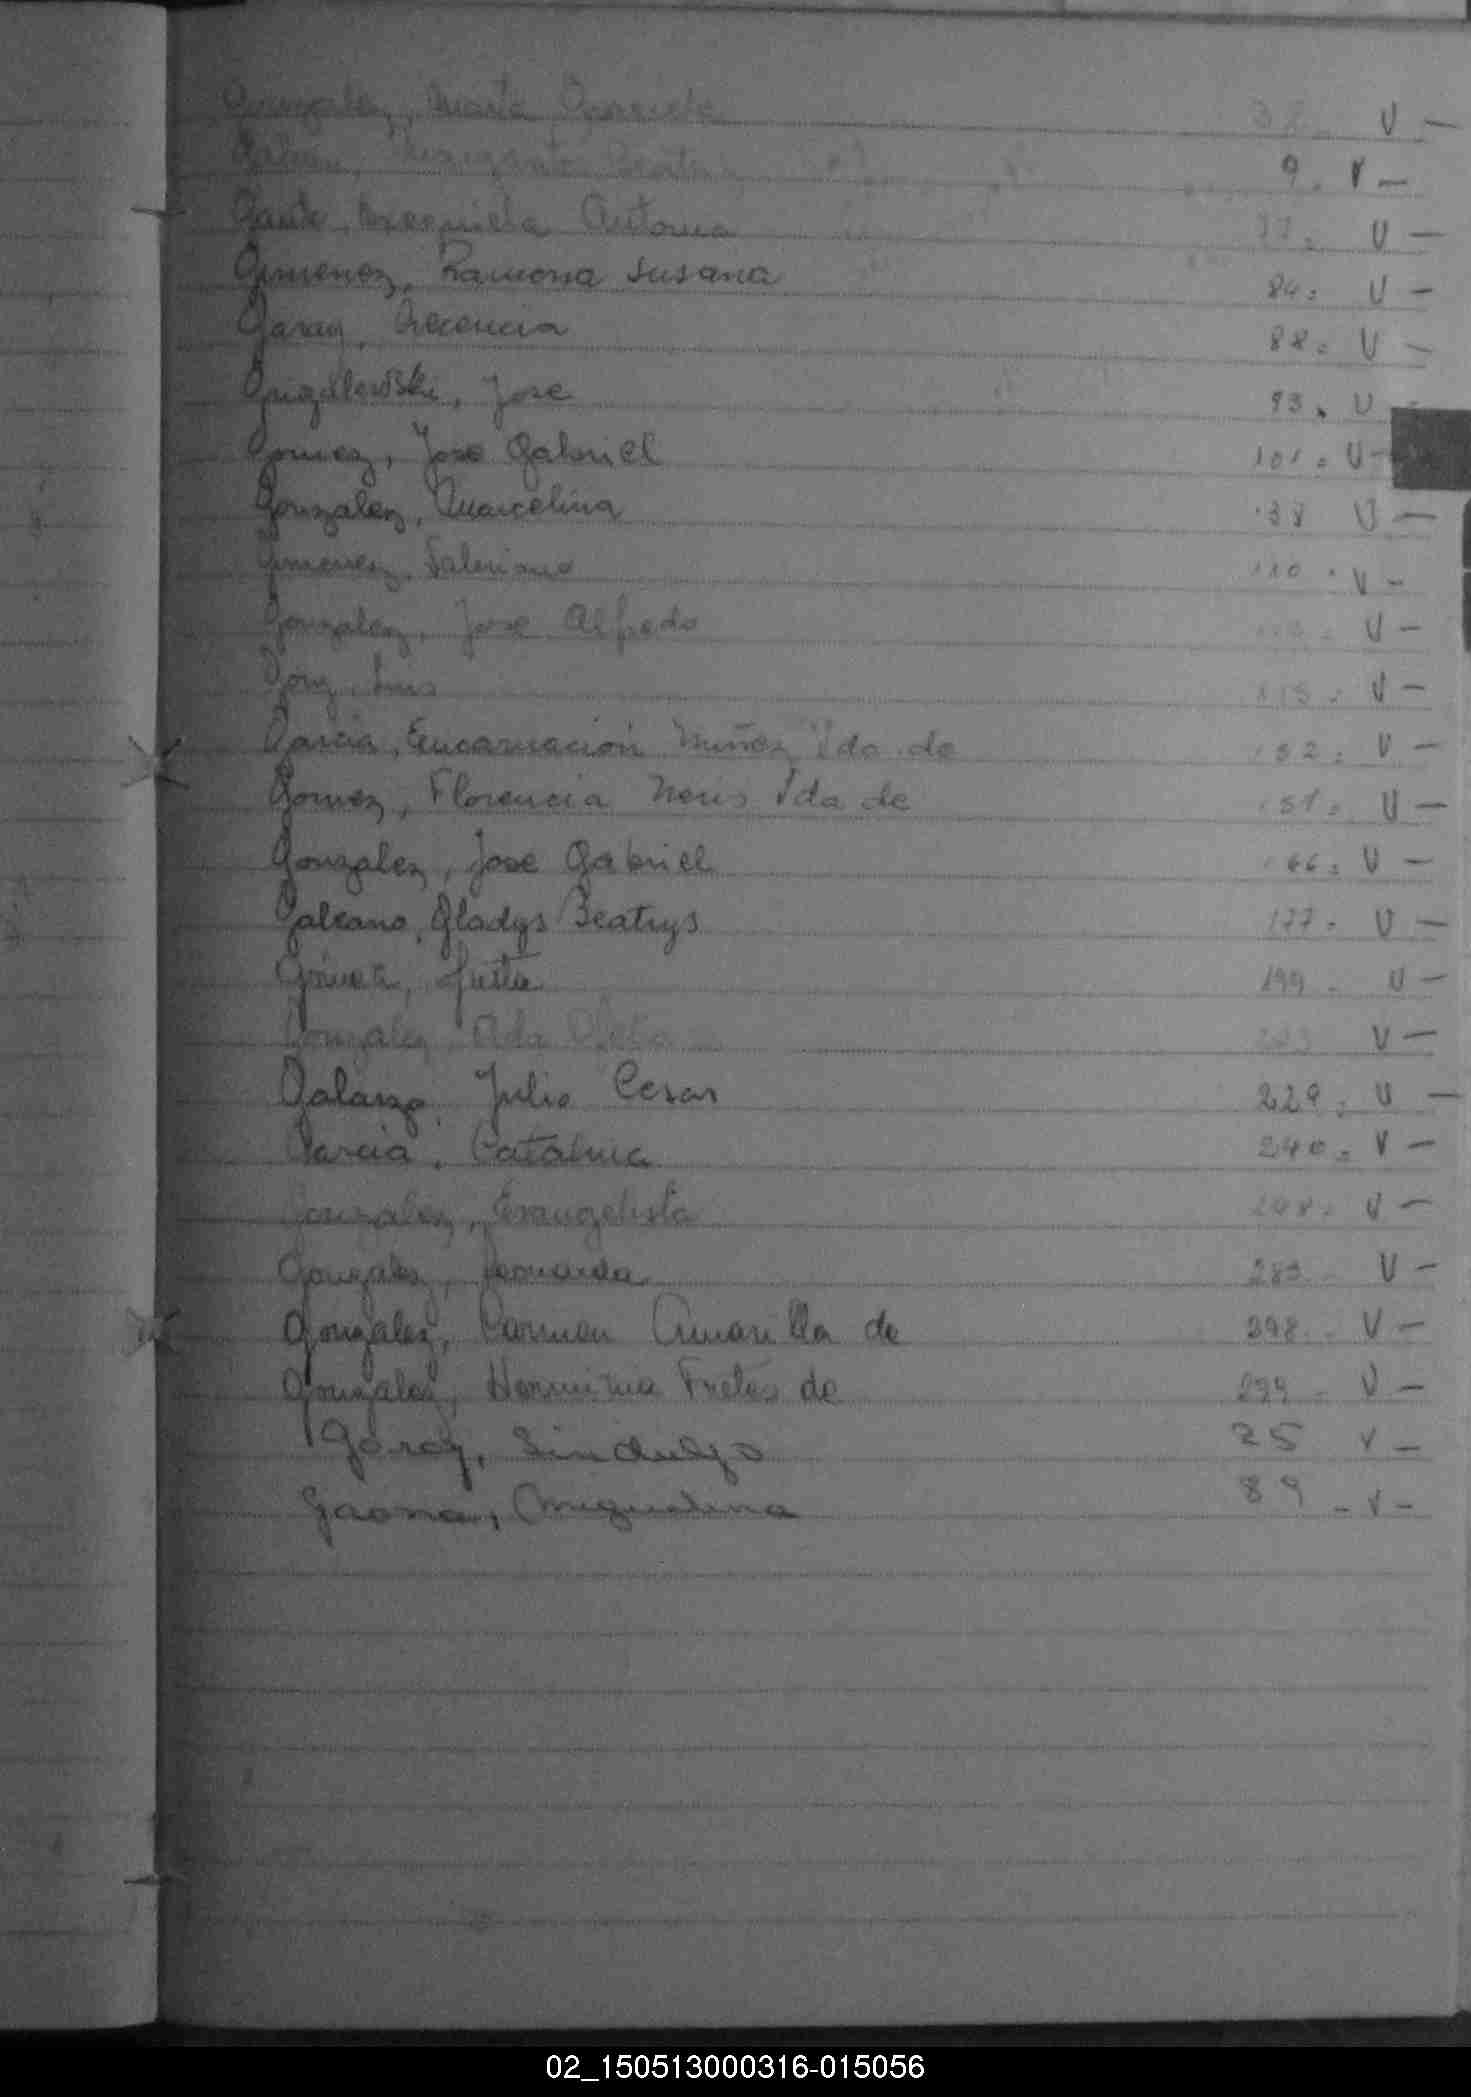 Gonzalez, Maria Graciela 38 V -
9. V -
Antonia V -
Gimenez, Ramona Susana 84. V -
Garay, Crecencia 88. V -
Jose 93. V -
Gomez, Jose Gabriel 101. V -
Gonzalez, Marcelina 38 V -
Gimenez, 110. V -
Gonzalez, Jose Alfredo V -
Luis V -
Garcia, Encarnación Nuñez Vda. de V -
Gomez, Florencia Neris Vda de V -
Gonzalez, Jose Gabriel V -
Galeano, Gladys Beatrys 177. V -
Justa 199. V -
Gonzalez, Ada V -
Galarza, Julio Cesar 229. V -
Garcia, Catalina 240. V -
Gonzalez, Evangelista V -
Gonzalez, Leonarda 283 V -
Gonzalez, Carmen Amarilla de 298. V -
Gonzalez, Herminia Fretes de 299. V -
Garay, Sindulfo 25 V -
Gaona, Miguelina 89 - V -
02_150513000316-015056